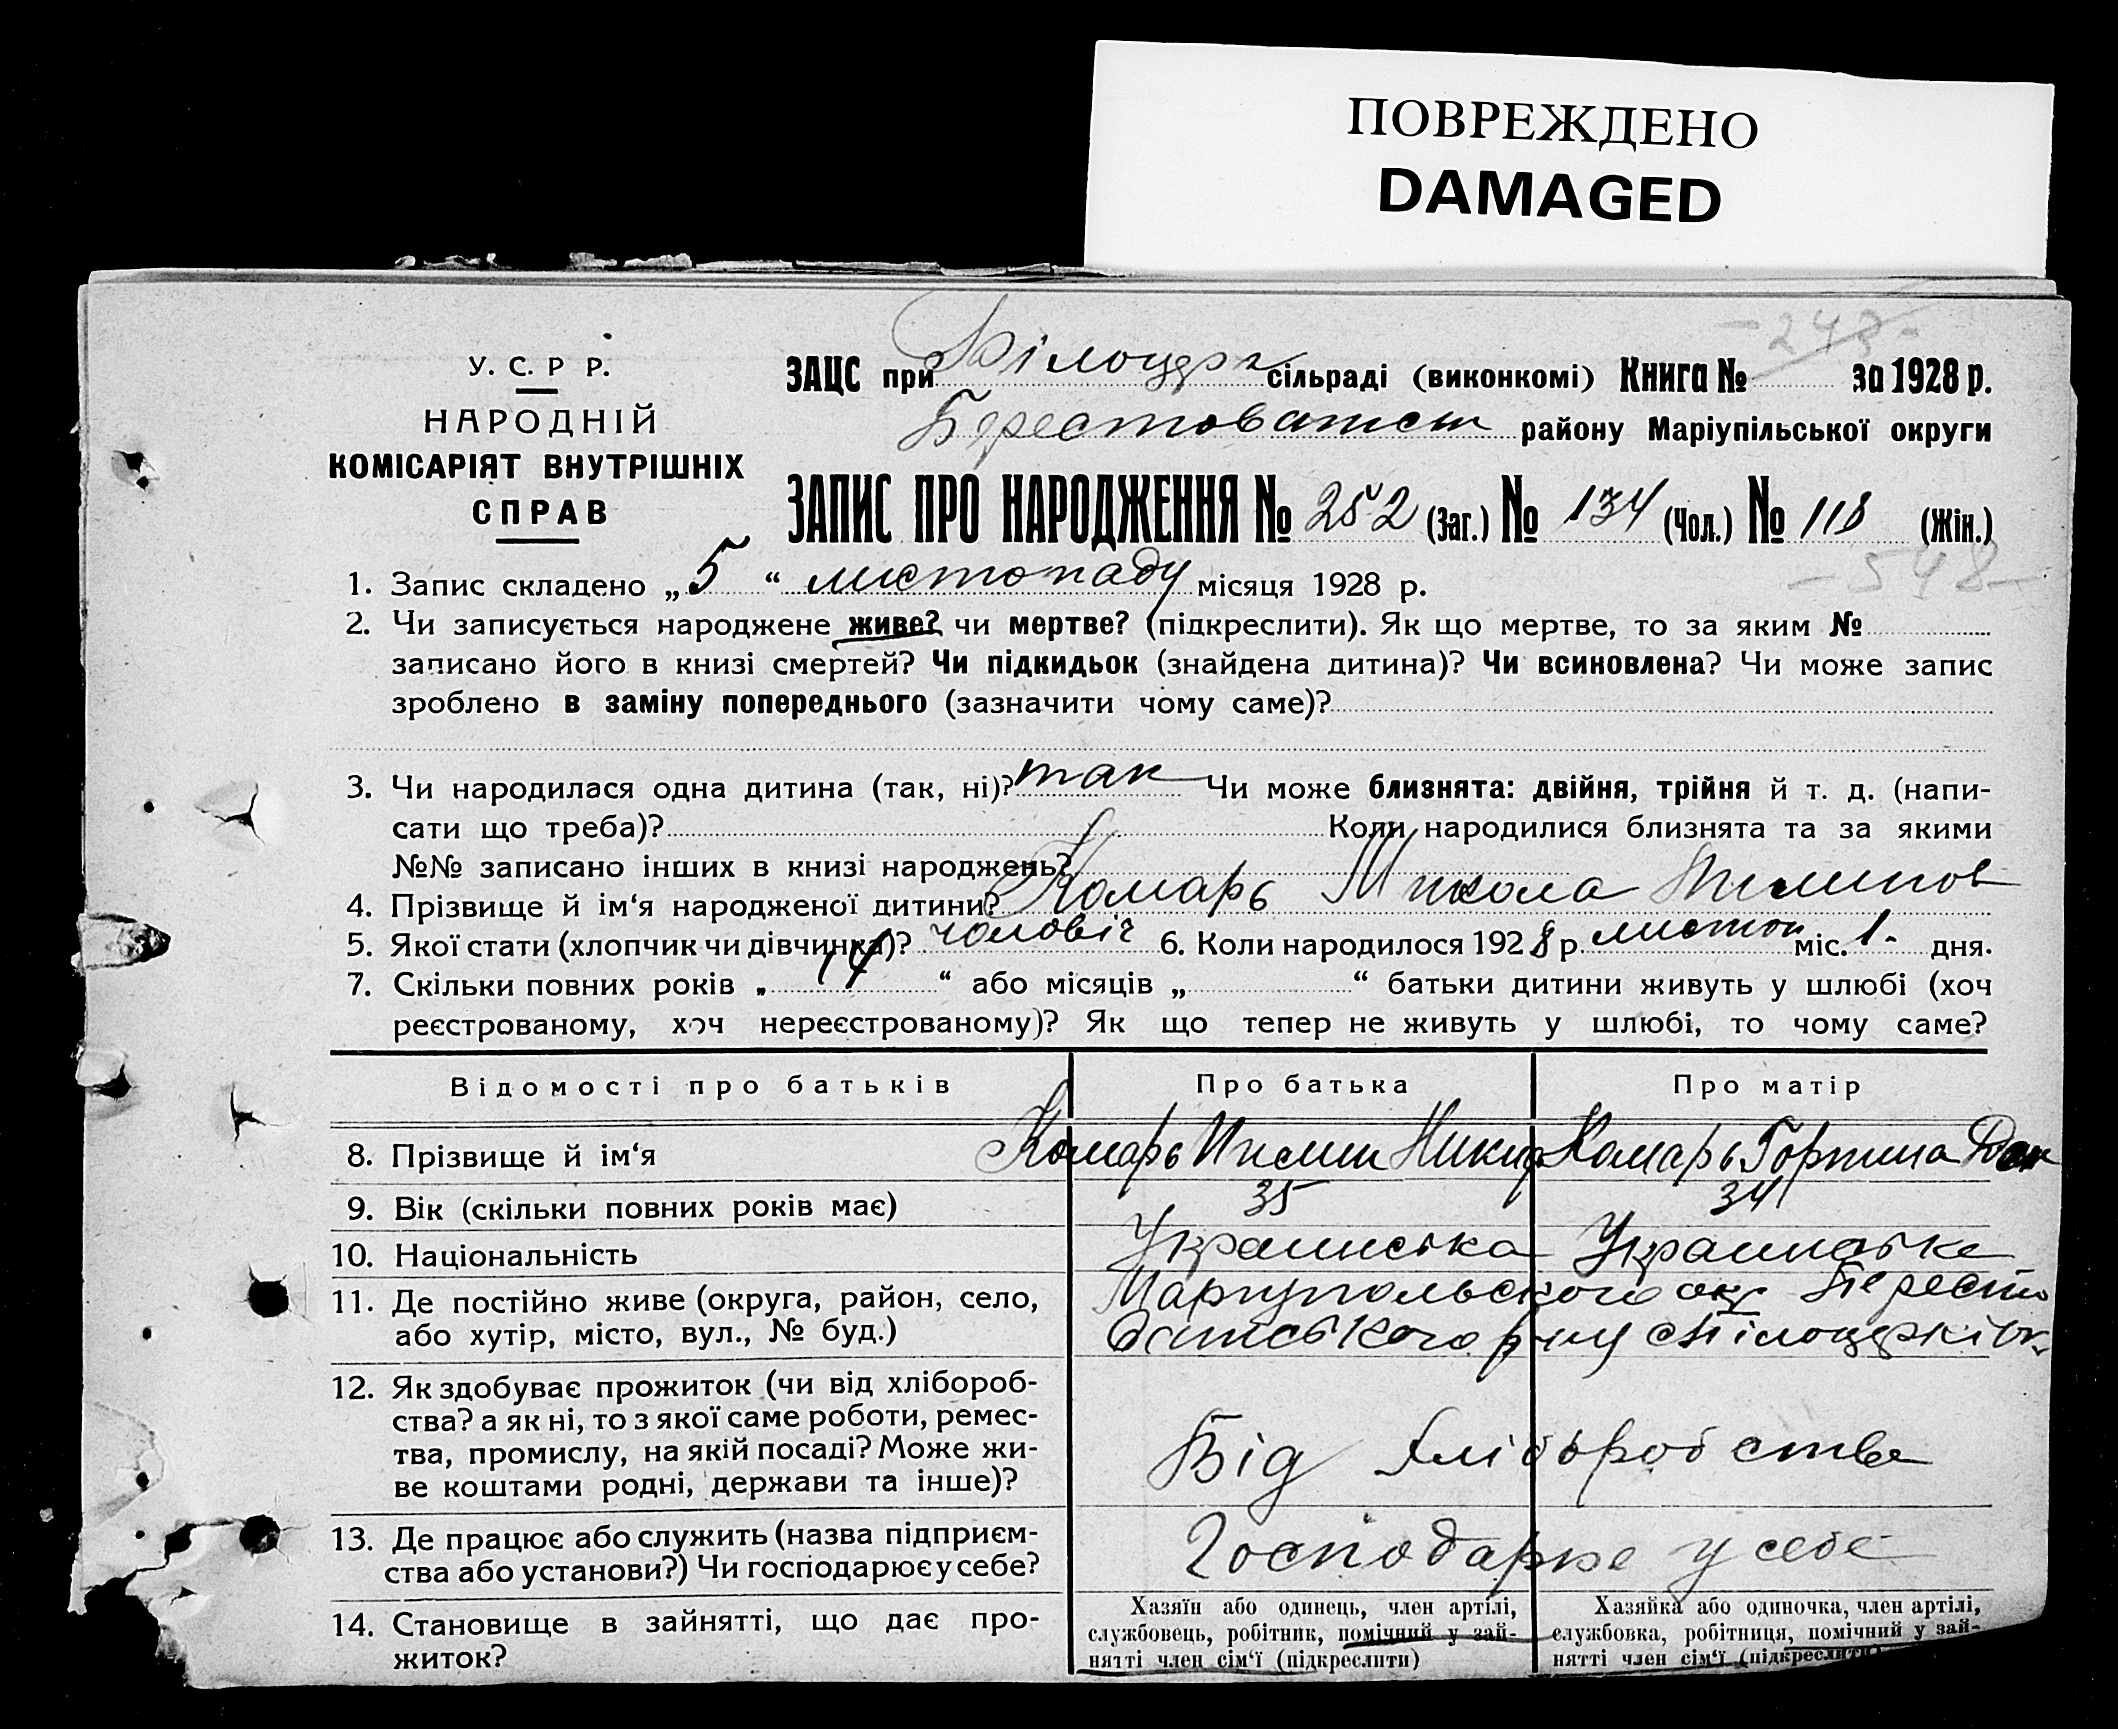 ПОВРЕЖДЕНО
DAMAGED
-243-
У. С. Р Р.
ЗАЦС при Білоцерк сільраді (виконкомі) Книга № за 1928 р.
НАРОДНІЙ
Берестоватськ району Маріупільської округи
КОМІСАРІЯТ ВНУТРІШНІХ
СПРАВ
ЗАПИС ПРО НАРОДЖЕННЯ № 252 (Заг.) № 134 (Чол.) № 118 (Жін.)
-548-
1. Запис складено „ 5 “ листопаду місяця 1928 р.
2. Чи записується народжене живе? чи мертве? (підкреслити). Як що мертве, то за яким №
записано його в книзі смертей? Чи підкидьок (знайдена дитина)? Чи всиновлена? Чи може запис
зроблено в заміну попереднього (зазначити чому саме)?
3. Чи народилася одна дитина (так, ні)? так Чи може близнята: двійня, трійня й т. д. (напи-
сати що треба)? Коли народилися близнята та за якими
№№ записано інших в книзі народжень?
4. Прізвище й ім‘я народженої дитини? Комарь Микола
5. Якої стати (хлопчик чи дівчинка)? чоловіч 6. Коли народилося 1928 р. листоп міс. 1 - дня.
7. Скільки повних років „ 14 “ або місяців „ “ батьки дитини живуть у шлюбі (хоч
реєстрованому, хоч нереєстрованому)? Як що тепер не живуть у шлюбі, то чому саме?
Відомості про батьків Про батька Про матір
8. Прізвище й ім‘я Комарь Никиф Комарь
9. Вік (скільки повних років має) 35 34
10. Національність Украинська Украинська
11. Де постійно живе (округа, район, село, Маріупольского окр Бересто
або хутір, місто, вул., № буд.) ватського р-ну с Білоцерківк
12. Як здобуває прожиток (чи від хлібороб-
ства? а як ні, то з якої саме роботи, ремес-
тва, промислу, на якій посаді? Може жи-
ве коштами родні, держави та інше)?
Від хліборобства
13. Де працює або служить (назва підприєм-
ства або установи?) Чи господарює у себе?
Господарює у себе
14. Становище в зайнятті, що дає про-
житок?
Хазяїн або одинець, член артілі,
службовець, робітник, помічний у зай-
нятті член сім‘ї (підкреслити)
Хазяйка або одиночка, член артілі,
службовка, робітниця, помічний у зай-
нятті член сім‘ї (підкреслити)